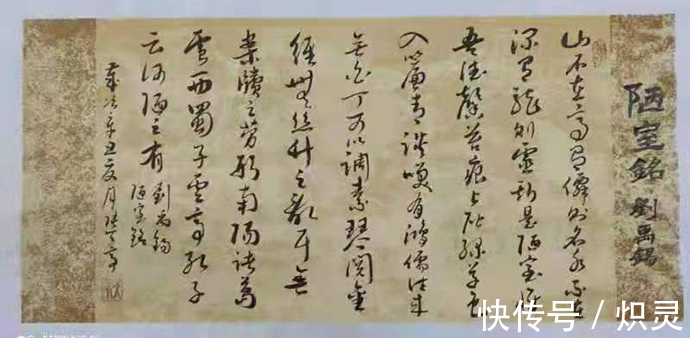 陋室銘 劉禹錫
山不在高有僊則名水不在
深有龍則靈斯是陋室惟
吾德馨苔痕上階綠草色
入簾青談笑有鴻儒往來
無白丁可以調素琴閱金
經無絲竹之亂耳無
案牘之勞形南陽諸葛
廬西蜀子雲亭孔子
云何陋之有
劉禹錫
陋室銘
歲次辛丑夏月
快传号 / 炽灵